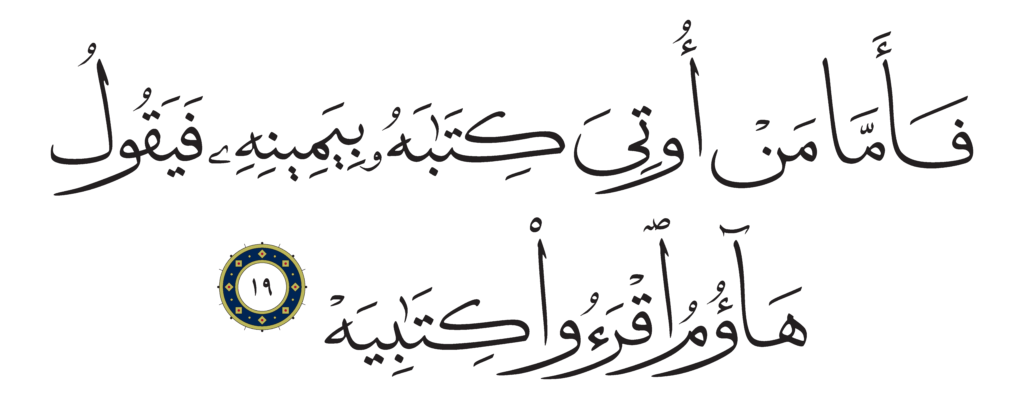 فَأَمَّا مَنْ أُوتِىَ كِتَٰبَهُۥ بِيَمِينِهِۦ فَيَقُولُ
هَآؤُمُ ٱقْرَءُوا۟ كِتَٰبِيَهْ ١٩